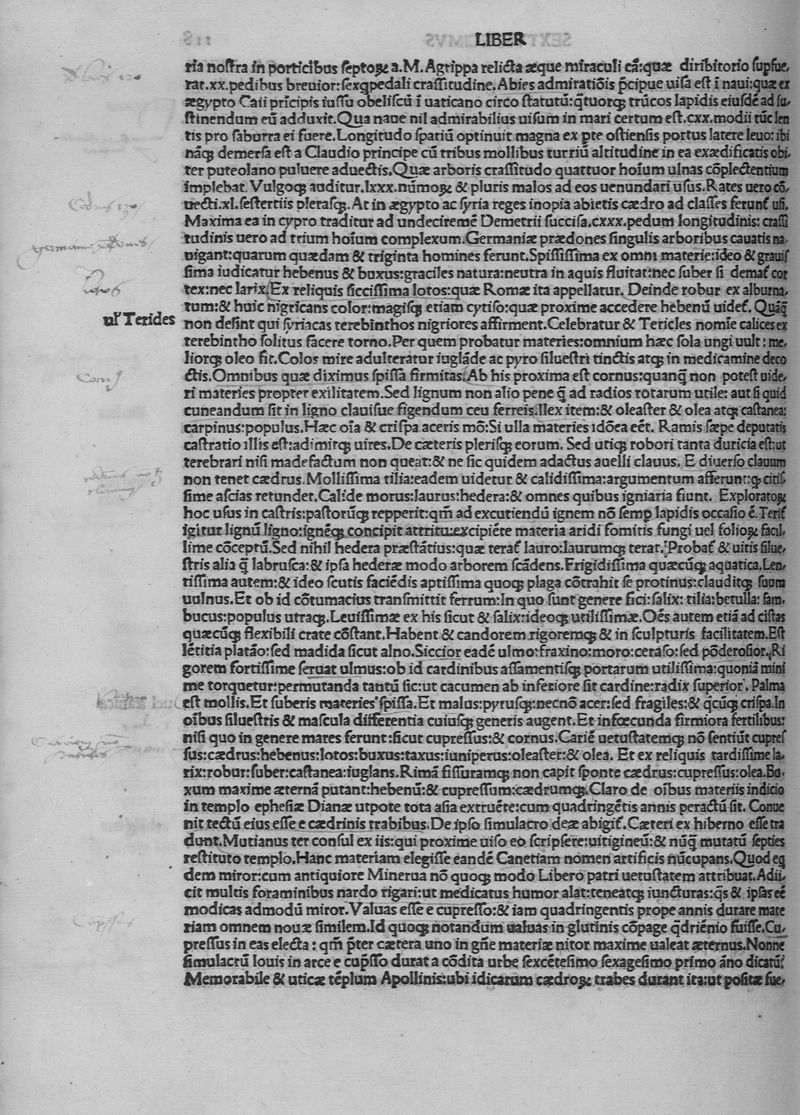 LIBER
ria noſtra in porticibus ſeptoꝝ a.M. Agrippa relicta æque miraculi cā:quæ diribitorio ſupfue,
rat.xx.pedibus breuior:ſexqpedali craſſitudine.Abies admiratiōis p̄cipue uiſa eſt ī naui:quæ ex
ægypto Caii prīcipis iuſſu obeliſcū ī uaticano circo ſtatutū:q̄tuorqꝫ trūcos lapidis eiuſdē ad ſu,
ſtinendum eū adduxit.Qua naue nil admirabilius uiſum in mari certum eſt.cxx.modii tūc len
tis pro ſaburra ei fuere.Longitudo ſpatiū optinuit magna ex ꝑte oſtienſis portus latere leuo:ibi
nāqꝫ demerſa eſt a Claudio principe cū tribus mollibus turriū altitudine in ea exædificatis obi,
ter puteolano puluere aduectis.Quæ arboris craſſitudo quattuor hoīum ulnas cōplectentium
implebat Vulgoqꝫ auditur.lxxx.nūmoꝝ & pluris malos ad eos uenundari uſus.Rates uero cō,
uecti.xl.ſeſtertiis pleraſqꝫ.At in ægypto ac ſyria reges inopia abietis cædro ad claſſes ferunť uſi.
Maxima ea in cypro traditur ad undeciremē Demetrii ſucciſa.cxxx.pedum longitudinis:craſſi
tudinis uero ad trium hoīum complexum.Germaniæ prædones ſingulis arboribus cauatis na,
uigant:quarum quædam & triginta homines ferunt.Spiſſiſſima ex omni materie:ideo & grauiſ
ſima iudicatur hebenus & buxus:graciles natura:neutra in aquis fluitat:nec ſuber ſi demať cor
tex:nec larix.Ex reliquis ſicciſſima lotos:quæ Romæ ita appellatur. Deinde robur ex alburna,
tum:& huic nigricans color:magiſqꝫ etiam cytiſo:quæ proxime accedere hebenū uideť. Quāq̄
ulʼ Terides
non deſint qui ſyriacas terebinthos nigriores affirment.Celebratur & Tericles nomīe calices ex
terebintho ſolitus facere torno.Per quem probatur materies:omnium hæc ſola ungi uult:me,
liorqꝫ oleo fit.Colos mire adulteratur iuglāde ac pyro ſilueſtri tinctis atqꝫ in medicamine deco
ctis.Omnibus quæ diximus ſpiſſa firmitas.Ab his proxima eſt cornus:quanq̄ non poteſt uide,
ri materies propter exilitatem.Sed lignum non alio pene q̄ ad radios rotarum utile: aut ſi quid
cuneandum ſit in ligno clauiſue figendum ceu ferreis.Ilex item:& oleaſter & olea atqꝫ caſtanea:
carpinus:populus.Hæc oīa & criſpa aceris mō:Si ulla materies idōea eēt. Ramis ſæpe deputatis
caſtratio illis eſt:adimitqꝫ uires.De cæteris pleriſqꝫ eorum. Sed utiqꝫ robori tanta duricia eſt:ut
terebrari niſi madefactum non queat:& ne ſic quidem adactus auelli clauus. E diuerſo clauum
non tenet cædrus.Molliſſima tilia:eadem uidetur & calidiſſima:argumentum afferunt:ꝙ citiſ,
ſime aſcias retundet.Calide morus:laurus:hedera:& omnes quibus igniaria fiunt. Exploratoꝝ
hoc uſus in caſtris:paſtorūqꝫ repperit:qm̄ ad excutiendū ignem nō ſemꝑ lapidis occaſio ē.Teriť
igitur lignū ligno:ignēqꝫ concipit attritu:excipiēte materia aridi fomitis fungi uel folioꝝ facil,
lime cōceptū.Sed nihil hedera præſtātius:quæ terať lauro:laurumqꝫ terat.Probať & uitis ſilue,
ſtris alia q̄ labruſca:& ipſa hederæ modo arborem ſcādens.Frigidiſſima quæcūqꝫ aquatica.Len,
tiſſima autem:& ideo ſcutis faciēdis aptiſſima quoqꝫ plaga cōtrahit ſe protinus:clauditqꝫ ſuum
uulnus.Et ob id cōtumacius tranſmittit ferrum:In quo ſunt genere fici:ſalix: tilia:betulla: ſam,
bucus:populus utraqꝫ.Leuiſſimæ ex his ſicut & ſalix:ideoqꝫ utiliſſimæ.Oēs autem etiā ad ciſtas
quæcūqꝫ flexibili crate cōſtant.Habent & candorem rigoremqꝫ & in ſculpturis facilitatem.Eſt
lētitia platāo:ſed madida ſicut alno.Siccior eadē ulmo:fraxino:moro:ceraſo:ſed pōderoſior.Ri
gorem fortiſſime ſeruat ulmus:ob id cardinibus aſſamentiſqꝫ portarum utiliſſima:quoniā mini
me torquetur:permutanda tantū ſic:ut cacumen ab inferiore ſit cardine:radix ſuperior. Palma
eſt mollis.Et ſuberis materies ſpiſſa.Et malus:pyruſqꝫ:necnō acer:ſed fragiles:& q̄cūqꝫ criſpa.In
oībus ſilueſtris & maſcula differentia cuiuſqꝫ generis augent.Et infœcunda firmiora fertilibus:
niſi quo in genere mares ferunt:ſicut cupreſſus:& cornus.Cariē uetuſtatemqꝫ nō ſentiūt cupreſ
ſus:cædrus:hebenus:lotos:buxus:taxus:iuniperus:oleaſter:& olea. Et ex reliquis tardiſſime la,
rix:robur:ſuber:caſtanea:iuglans.Rimā fiſſuramqꝫ non capit ſponte cædrus:cupreſſus:olea.Bu,
xum maxime æternā putant:hebenū:& cupreſſum:cædrumqꝫ.Claro de oībus materiis indicio
in templo epheſiæ Dianæ utpote tota aſia extruēte:cum quadringētis annis peractū ſit. Conue
nit tectū eius eſſe e cædrinis trabibus.De ipſo ſimulacro deæ abigiť.Cæteri ex hiberno eſſe tra
dunt.Mutianus ter conſul ex iis:qui proxime uiſo eo ſcripſere:uitigineū:& nūqꝫ mutatū ſepties
reſtituto templo.Hanc materiam elegiſſe eandē Canetiam nomen artificis nūcupans.Quod eq
dem miror:cum antiquiore Minerua nō quoqꝫ modo Libero patri uetuſtatem attribuat.Adii,
cit multis foraminibus nardo rigari:ut medicatus humor alat:teneatqꝫ iuncturas:q̄s & ipſas eē
modicas admodū miror.Valuas eſſe e cupreſſo:& iam quadringentis prope annis durare mate
riam omnem nouæ ſimilem.Id quoqꝫ notandum ualuas in glutinis cōpage q̄driēnio fuiſſe.Cu,
preſſus in eas electa : qm̄ p̄ter cætera uno in gn̄e materiæ nitor maxime ualeat æternus.Nonne
ſimulacrū Iouis in arce e cupſſo durat a cōdita urbe ſexcēteſimo ſexageſimo primo āno dicatū?
Memorabile & uticæ tēplum Apollinis:ubi idicarum cædroꝝ trabes durant ita:ut poſitæ fue,